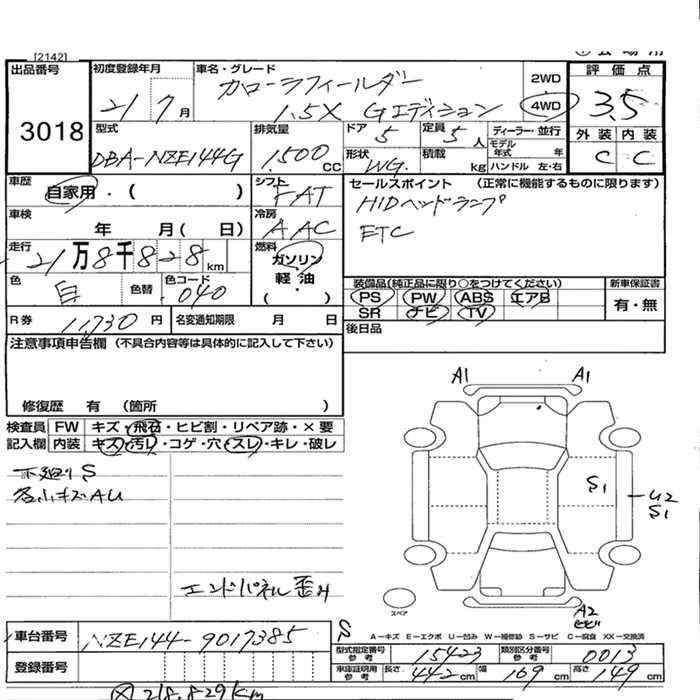 [2142]
出品番号 3018
初度登録年月 21 7 月
車名・グレード カローラフィールダー 1.5X Gエディション
2WD 4WD
評価点 3.5
外装 内装
C C
型式 DBA-NZE144G
排気量 1,500 CC
ドア 5 定員 5 人
形状 WG. 積載 kg
ディーラー・並行
モデル年式 年
ハンドル 左・右
車歴 自家用・( )
シフト FAT
セールスポイント (正常に機能するものに限ります)
HIDヘッドランプ
ETC
車検 年 月( 日)
冷房 AAC
走行 21万8千828 km
燃料 ガソリン 軽油 ( ・ )
色 白 色替 色コード 040
装備品(純正品に限り○をつけてください) 新車保証書
PS PW ABS エアB 有・無
SR ナビ TV
R券 11,730 円 名変通知期限 月 日
後日品
注意事項申告欄 (不具合内容等は具体的に記入して下さい)
修復歴 有 (箇所 )
検査員 FW キズ・飛石・ヒビ割・リペア跡・×要
記入欄 内装 キズ・汚レ・コゲ・穴・スレ・キレ・破レ
下廻りS
各小キズAU
エンドパネル歪み
A1 A1
S1
U2
S1
スペア
A2
ヒビ
S
A-キズ E-エクボ U-凹み W-補修跡 S-サビ C-腐食 XX-交換済
車台番号 NZE144-9017385
型式指定番号 参考 15423 類別区分番号 参考 0013
登録番号
車庫証明用 参考 長さ 442 cm 幅 169 cm 高さ 149 cm
218,829km